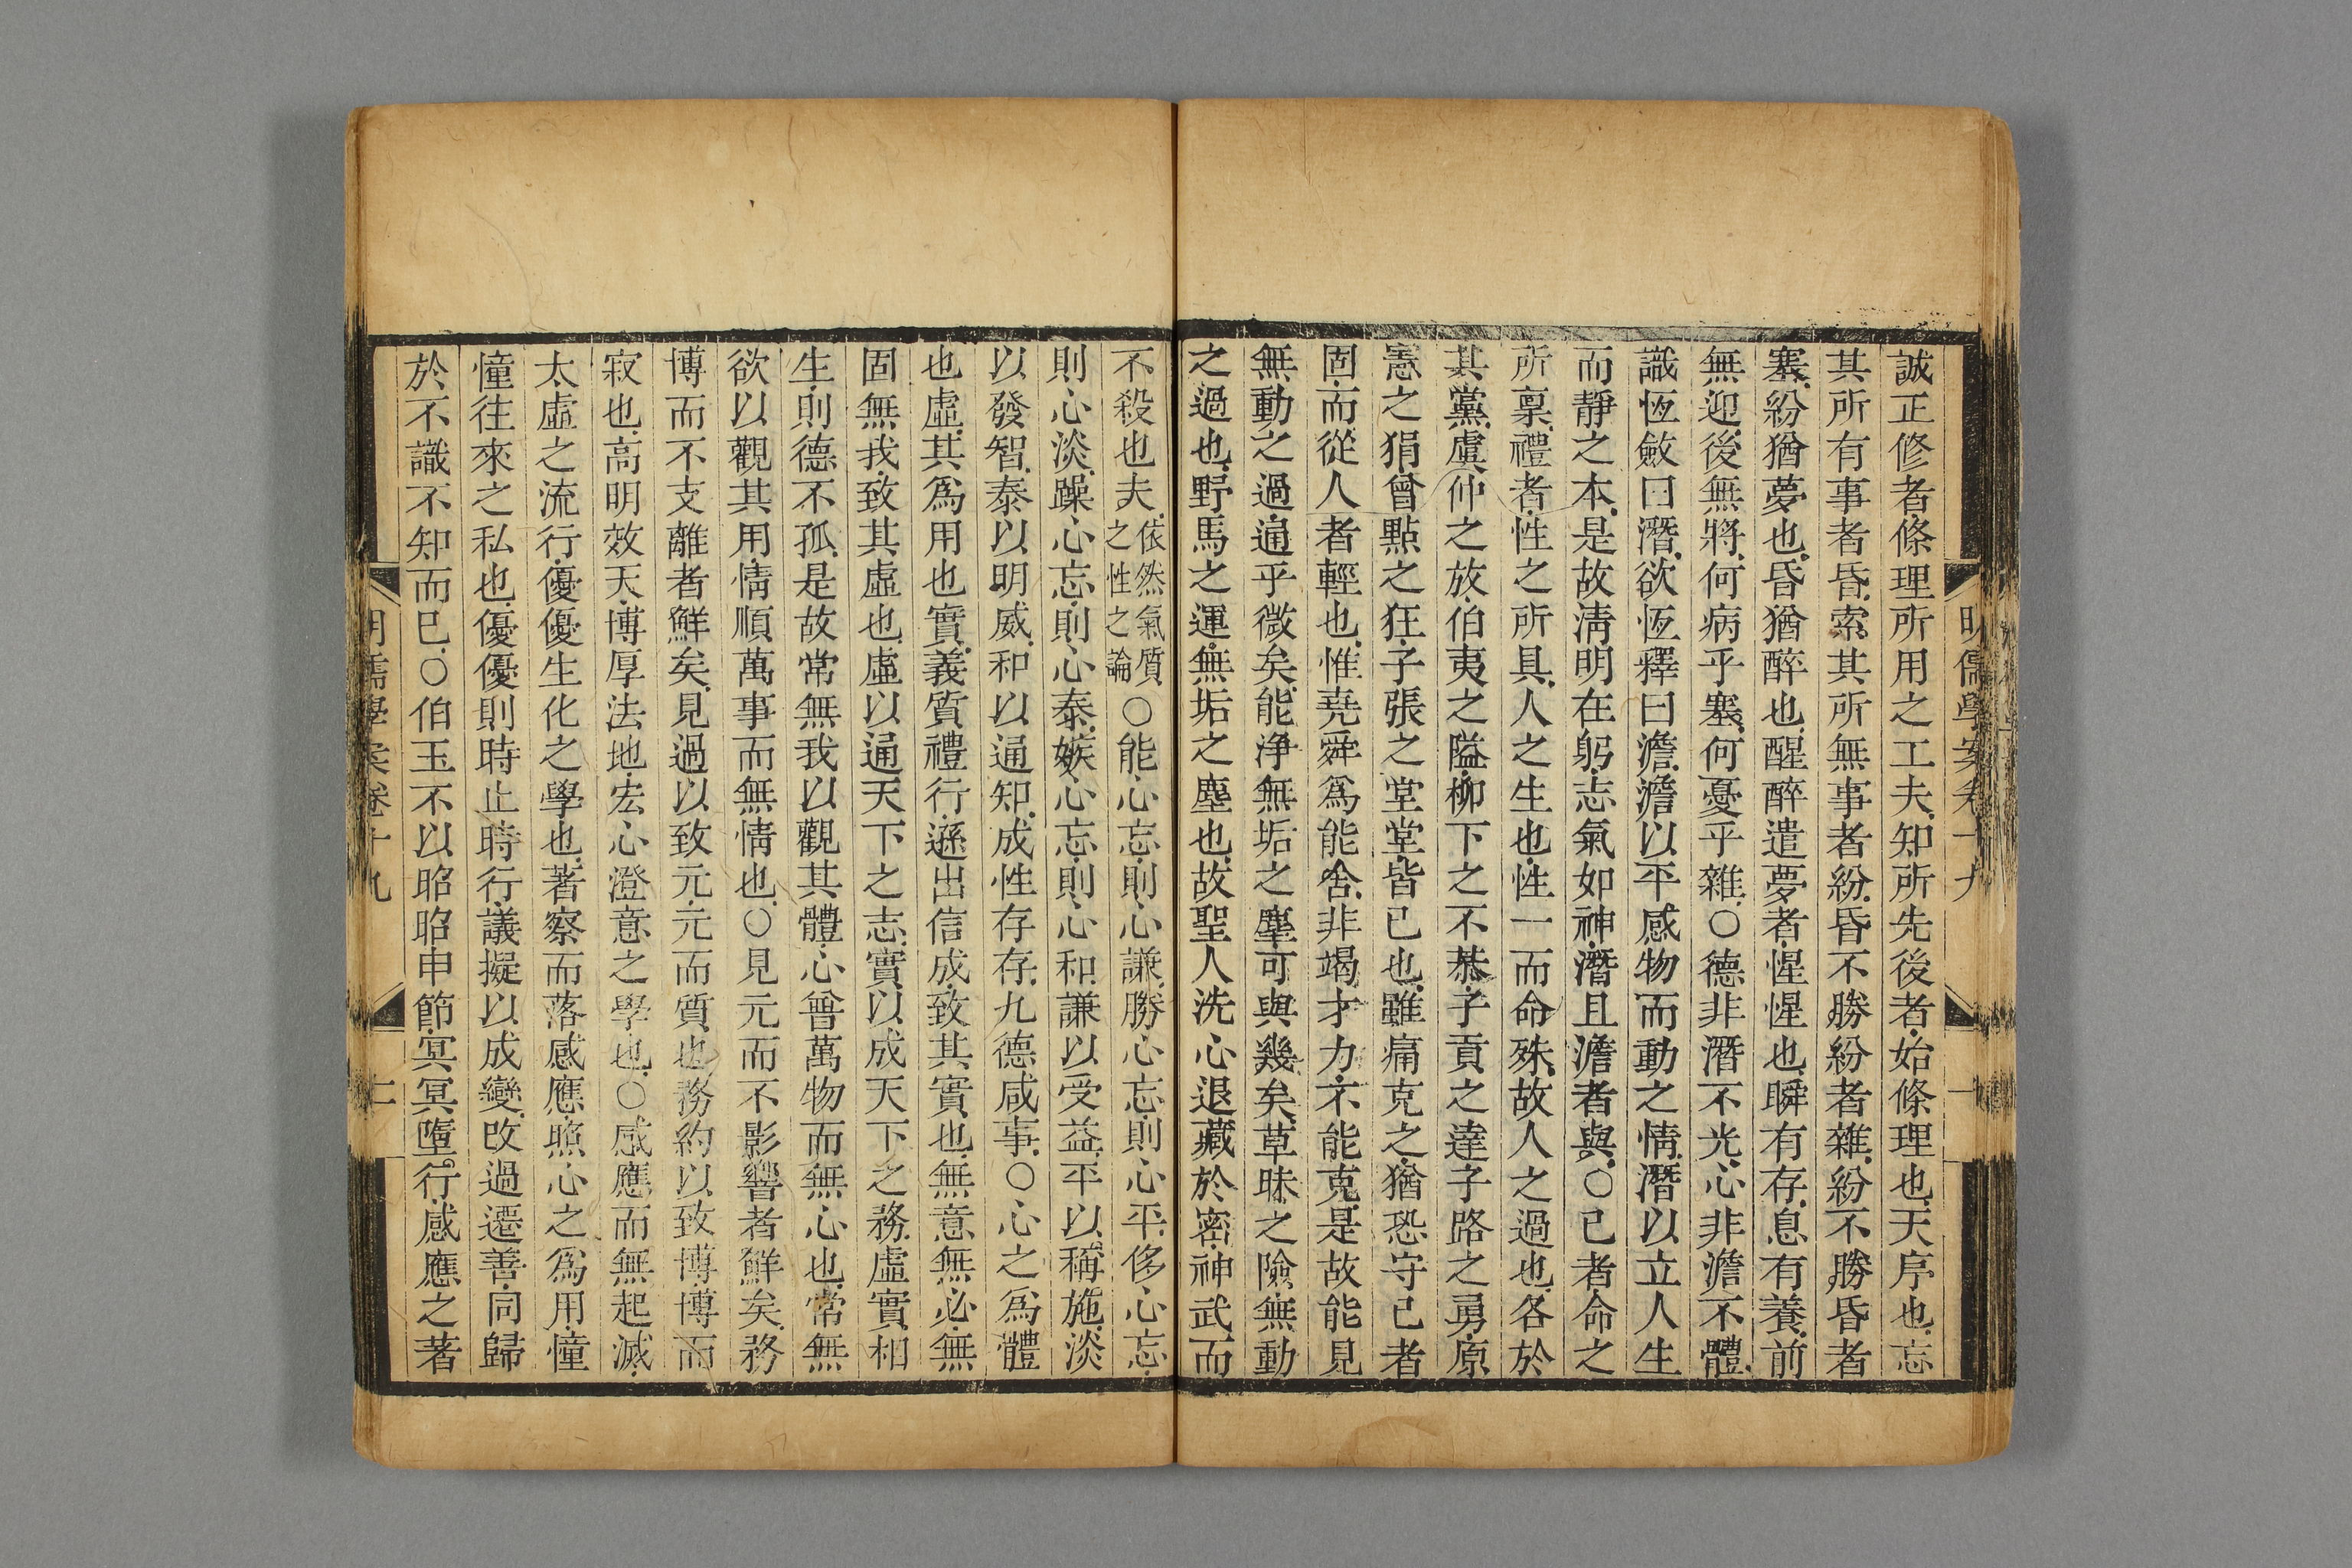 誠正修者條理所用之工夫知所先後者始條理也天序也忘
其所有事者昏索其所無事者紛昏不勝紛者雜紛不勝昏者
塞紛猶夢也昏猶醉也醒醉遣夢者惺惺也瞬有存息有養前
無迎後無將何病乎塞何憂乎雜○德非潛不光心非澹不體
識恆斂曰潛欲恆釋曰澹澹以平感物而動之情潛以立人生
而靜之本是故淸明在躬志氣如神潛且澹者與○己者命之
所稟禮者性之所具人之生也性一而命殊故人之過也各於
其黨虞仲之放伯夷之隘柳下之不恭子貢之達子路之勇原
憲之狷曾點之狂子張之堂堂皆已也雖痛克之猶恐守己者
固而從人者輕也惟堯舜爲能舍非竭才力不能克是故能見
無動之過通乎微矣能淨無垢之塵可與幾矣草昧之險無動
之過也野馬之運無垢之塵也故聖人洗心退藏於密神武而
不殺也夫依然氣質之性之論○能心忘則心謙勝心忘則心平侈心忘
則心淡躁心忘則心泰嫉心忘則心和謙以受益平以稱施淡
以發智泰以明威和以通知成性存存九德咸事○心之爲體
也虛其爲用也實義質禮行遜出信成致其實也無意無必無
固無我致其虛也虛以通天下之志實以成天下之務虛實相
生則德不孤是故常無我以觀其體心普萬物而無心也常無
欲以觀其用情順萬事而無情也○見元而不影響者鮮矣務
博而不支離者鮮矣見過以致元元而質也務約以致博博而
寂也高明效天博厚法地宏心澄意之學也○感應而無起滅
太虛之流行優優生化之學也著察而落感應照心之爲用憧
憧往來之私也優優則時止時行議擬以成變改過遷善同歸
於不識不知而已○伯玉不以昭昭申節冥冥墮行感應之著
明儒學案卷十九